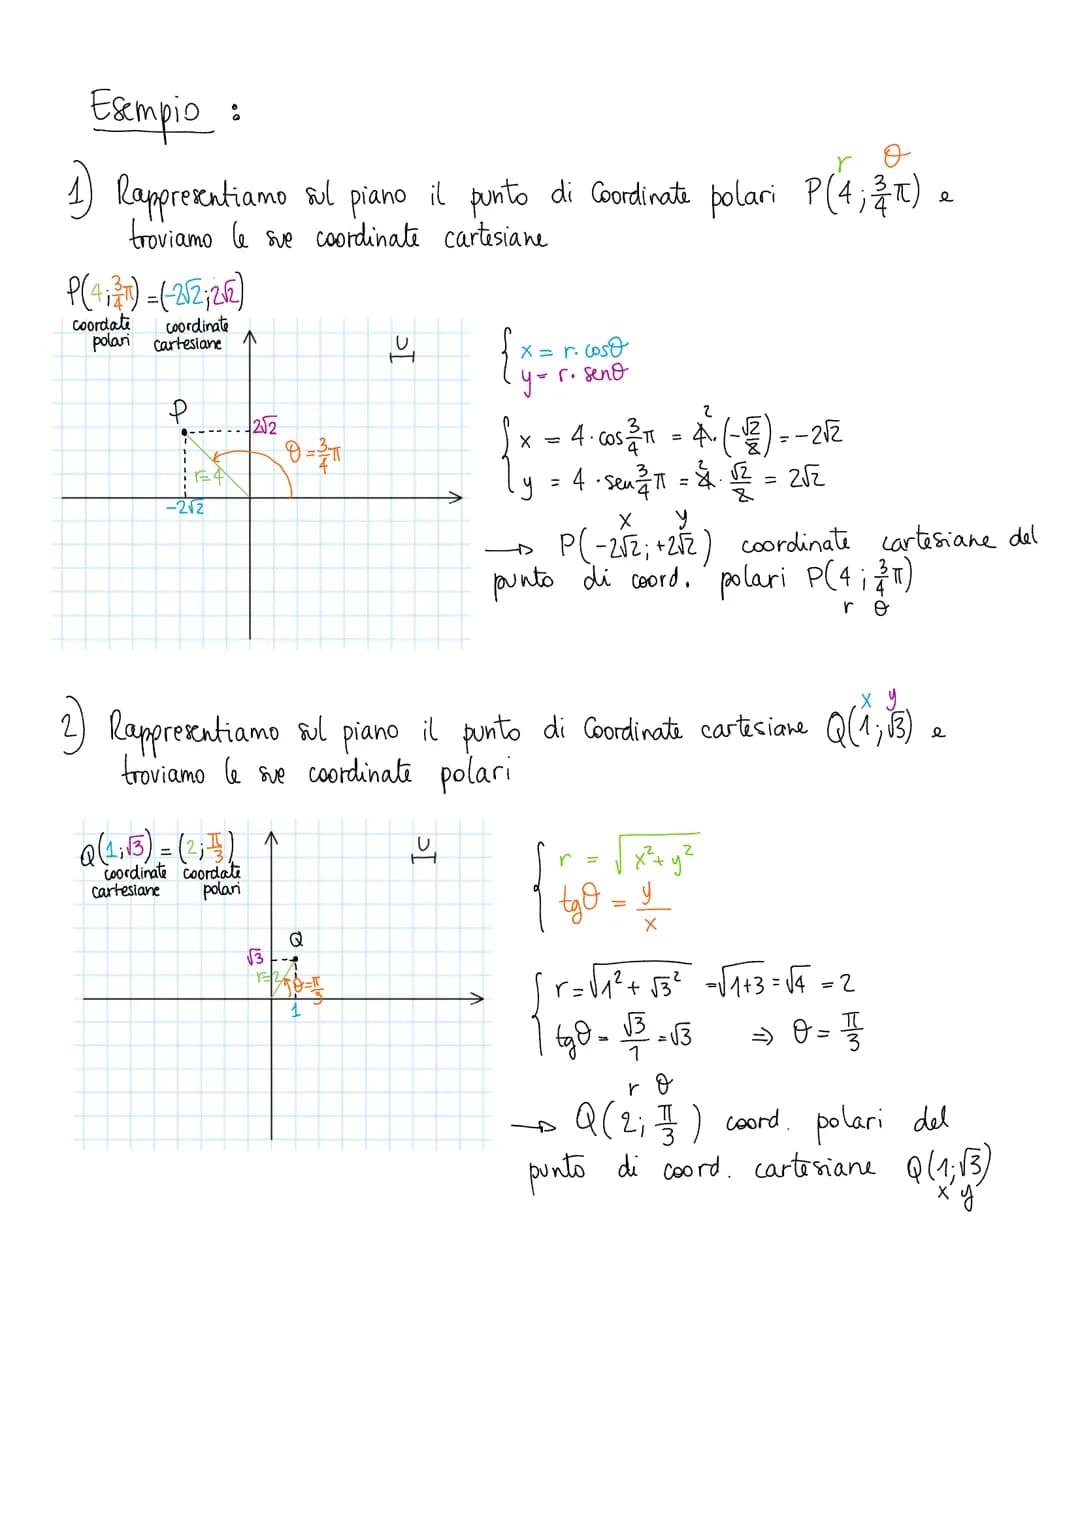 Esempio :
r θ
1) Rappresentiamo sul piano il punto di Coordinate polari P(4; 3/4 π) e
troviamo le sue coordinate cartesiane
P(4; 3/4 π) = (-2√2; 2√2)
coordate polari
coordinate cartesiane
U
P
2√2
θ = 3/4 π
r=4
-2√2
{ x = r · cosθ
y = r · senθ
{ x = 4 · cos 3/4 π = 4 2 · (-√2/2) = -2√2
y = 4 · sen 3/4 π = 4 2 · √2/2 = 2√2
x y
→ P(-2√2; +2√2) coordinate cartesiane del
punto di coord. polari P(4; 3/4 π)
r θ
x y
2) Rappresentiamo sul piano il punto di Coordinate cartesiane Q(1; √3) e
troviamo le sue coordinate polari
Q(1; √3) = (2; π/3)
coordinate cartesiane
coordate polari
U
Q
√3
r=2
θ=π/3
1
{ r = √x²+y²
tgθ = y/x
{ r = √1² + √3² = √1+3 = √4 = 2
tgθ = √3/1 = √3 ⇒ θ = π/3
r θ
→ Q(2; π/3) coord. polari del
punto di coord. cartesiane Q(1; √3)
x y